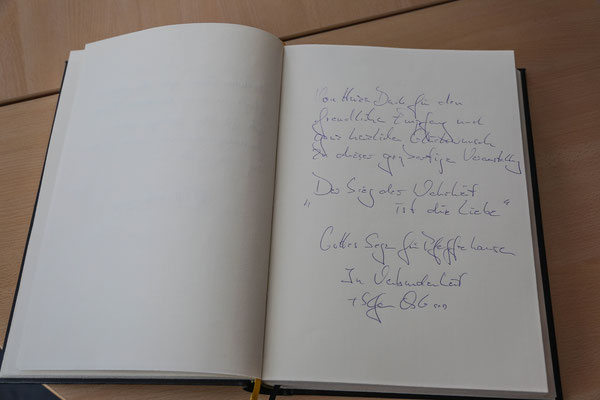 Von Herzen Dank für den
freundlichen Empfang und
ganz herzlichen Glückwunsch
zu dieser großartigen Veranstaltung
„Der Sieg der Wahrheit
ist die Liebe“
Gottes Segen für Pfeffenhausen
In Verbundenheit
+ Stefan Oster SDB